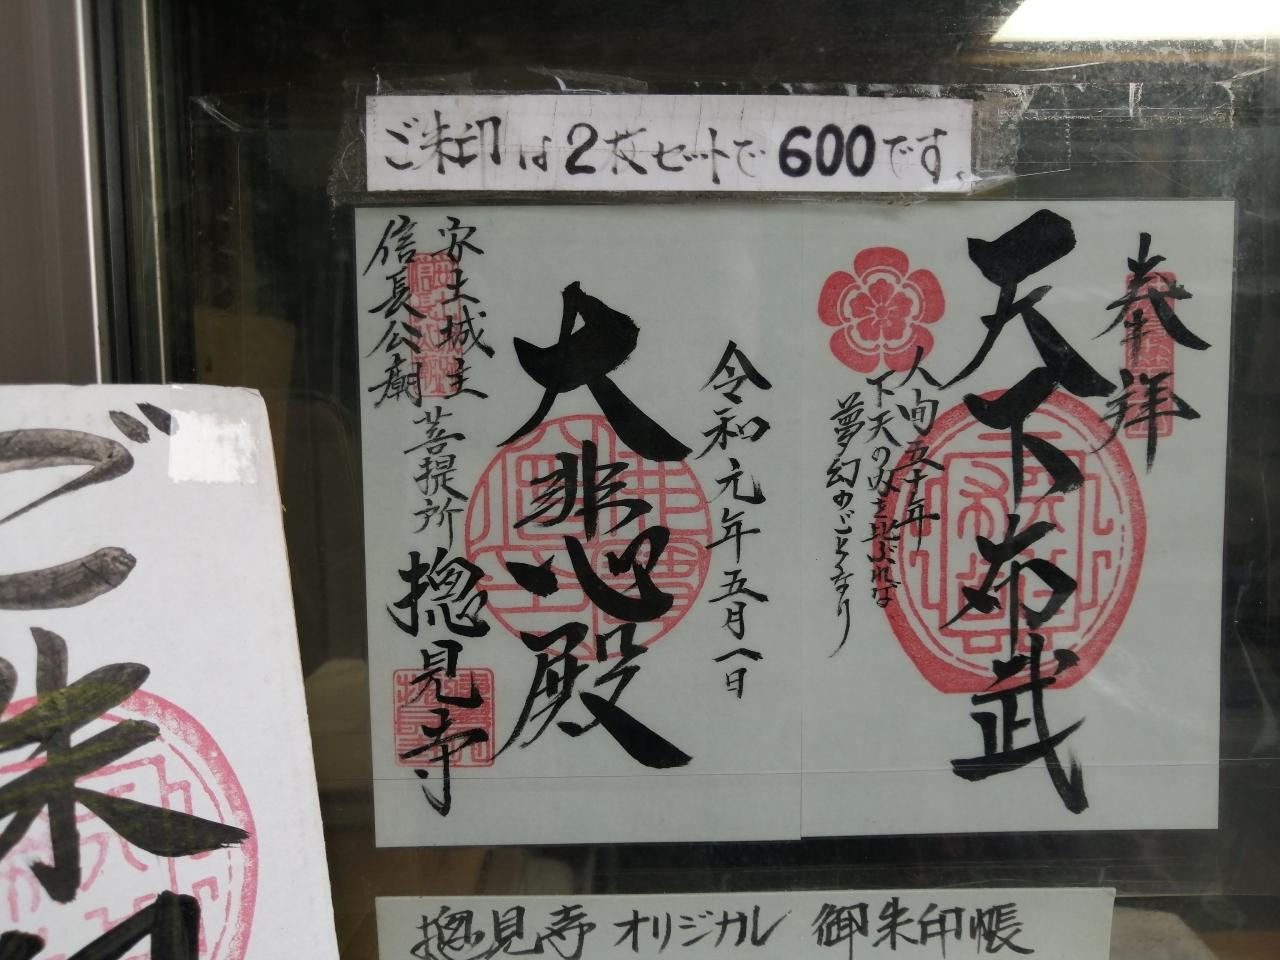 ご朱印は2枚セットで600です。
奉拝
天下布武
人間五十年
下天の内を比ぶれば
夢幻のごとくなり
令和元年五月一日
大悲殿
安土城主
信長公廟
菩提所
摠見寺
ご朱印
摠見寺オリジナル 御朱印帳